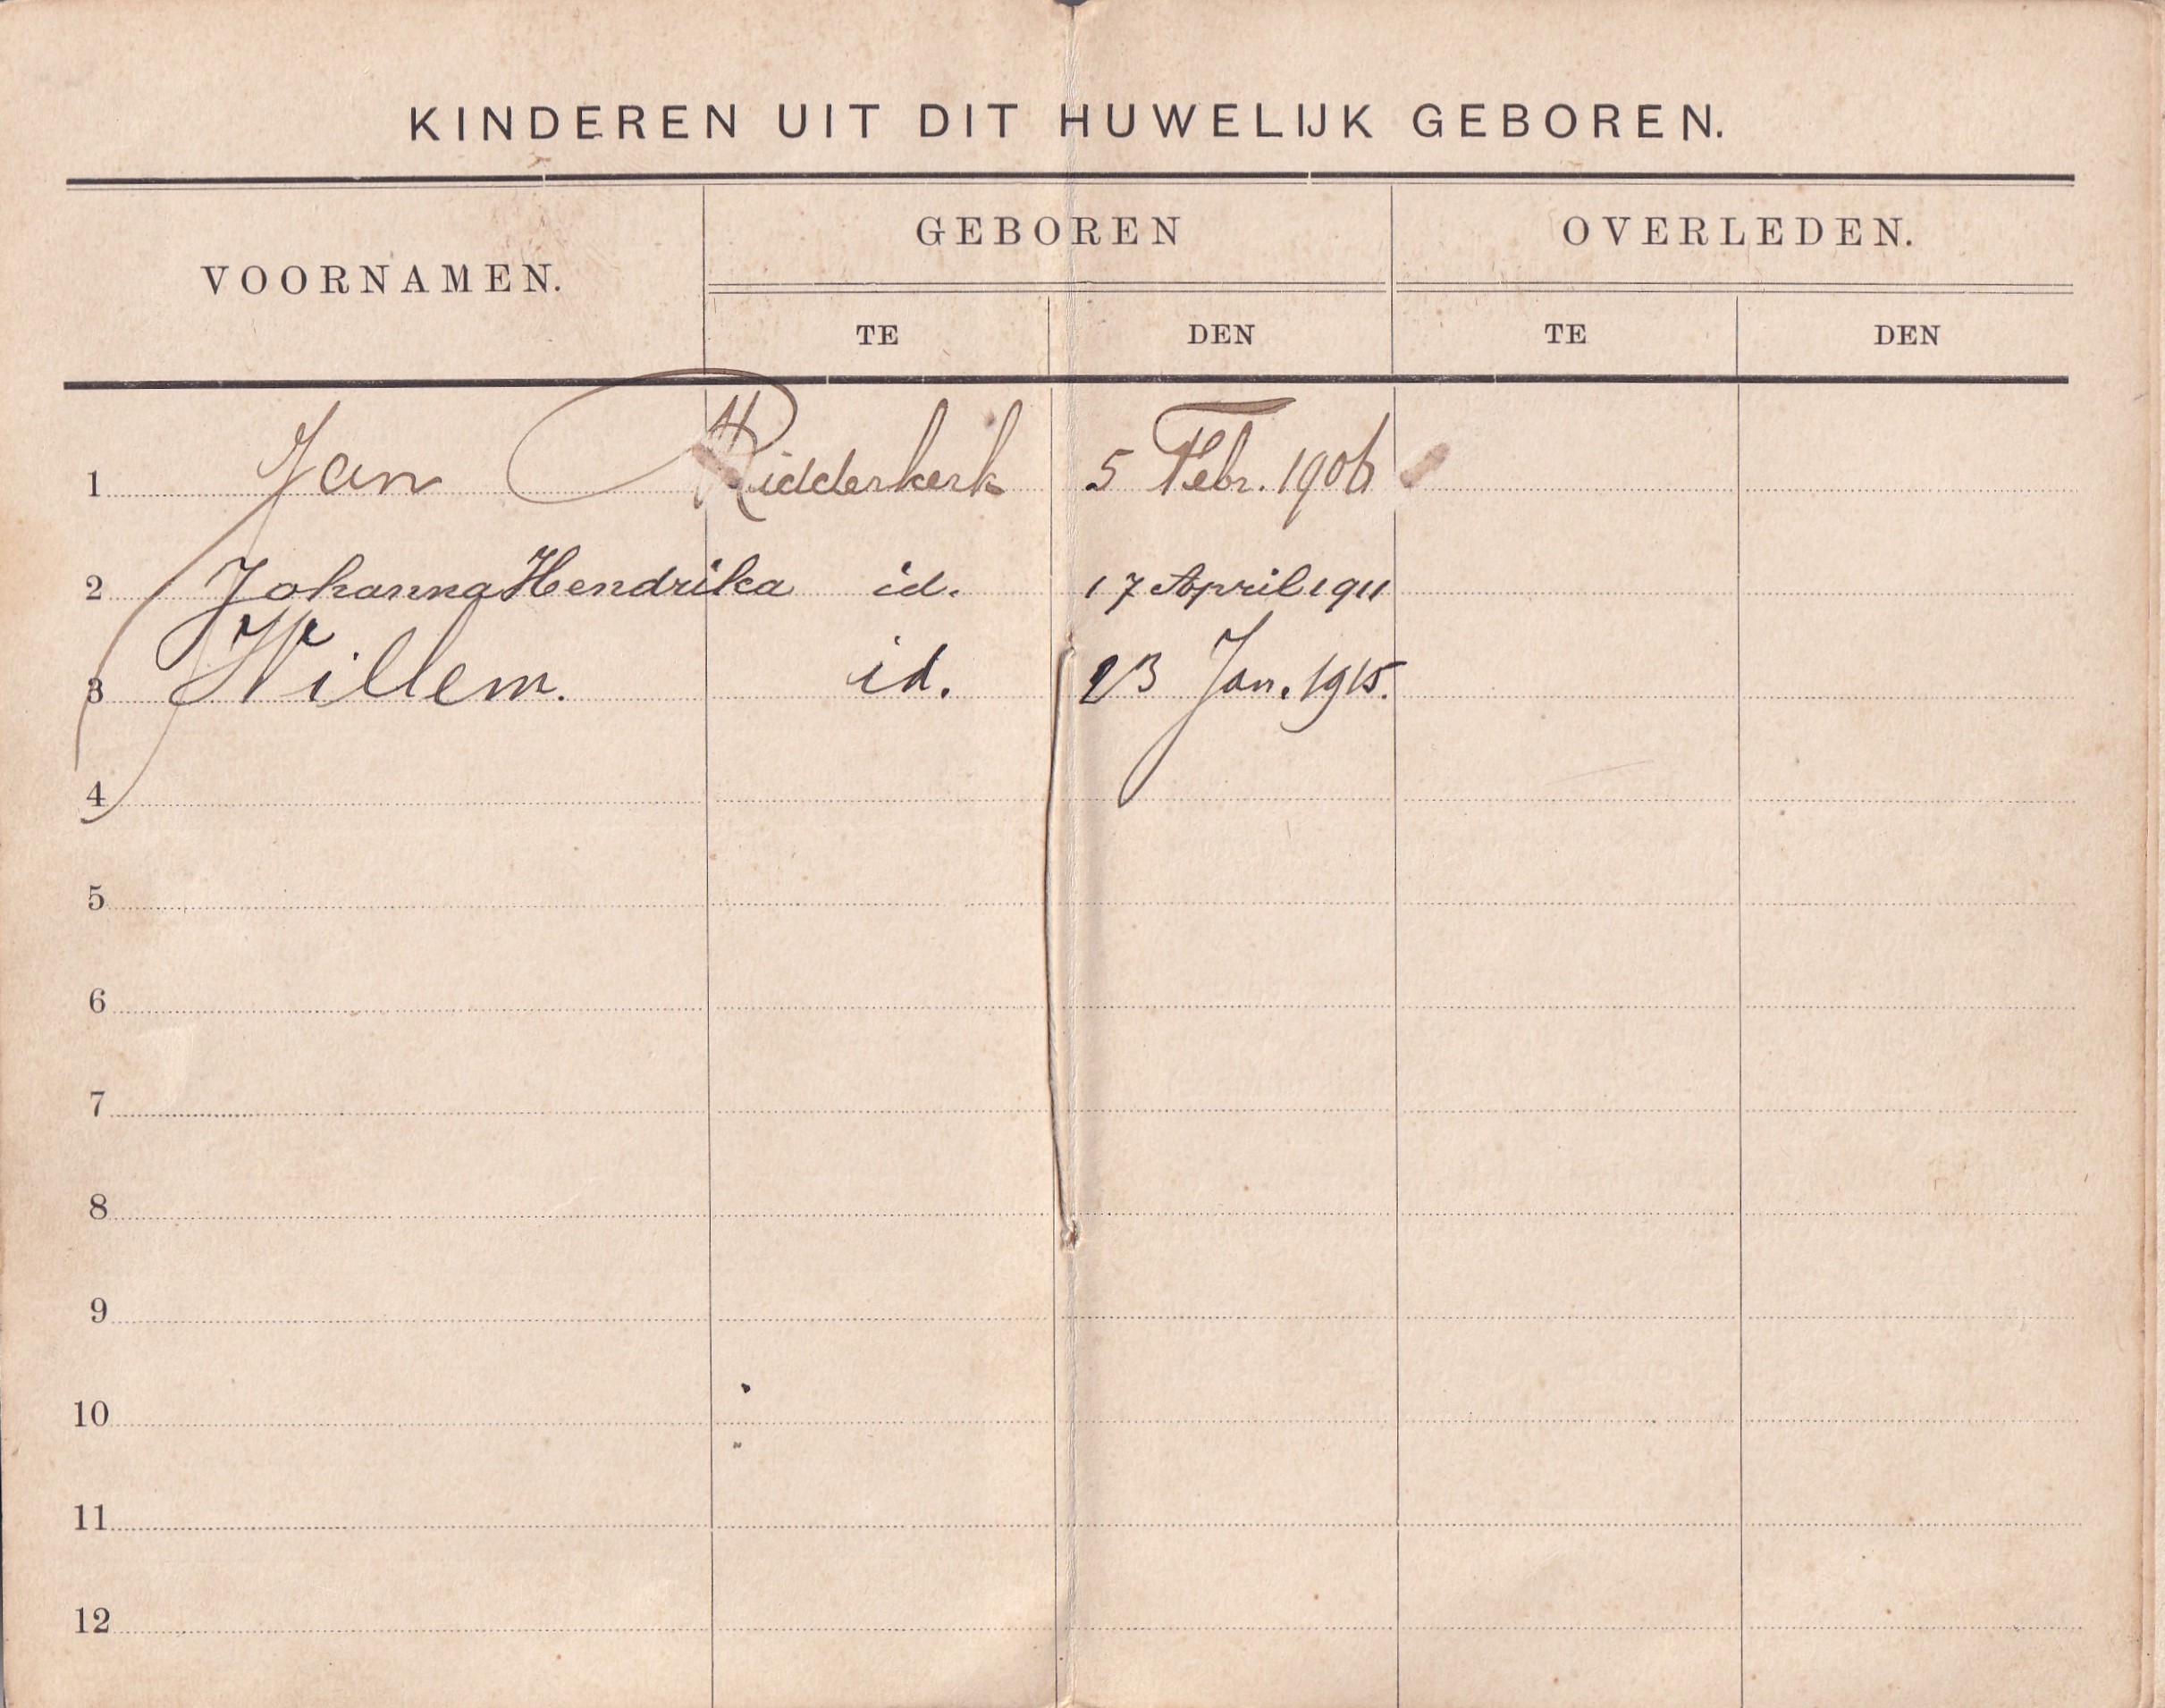 KINDEREN UIT DIT HUWELIJK GEBOREN.
VOORNAMEN. GEBOREN OVERLEDEN.
TE DEN TE DEN
1 Jan Ridderkerk 5 Febr. 1906
2 Johanna Hendrika id. 17 April 1911
3 Willem. id. 23 Jan. 1915.
4
5
6
7
8
9
10
11
12